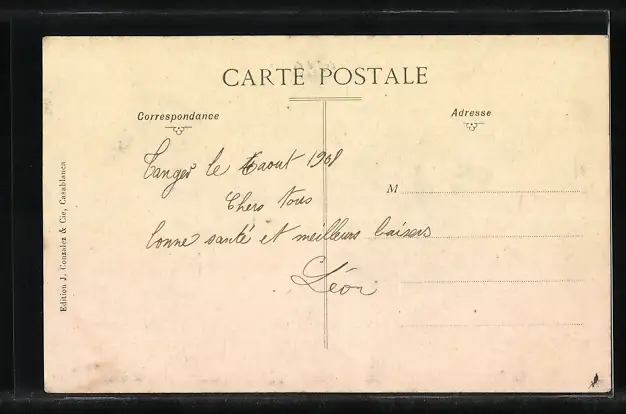 CARTE POSTALE
Correspondance
Adresse
Tanger le 6 aout 1908
Chers Tous
bonne santé et meilleurs baisers
Léon
M
Edition J. Gonzalez & Cie, Casablanca